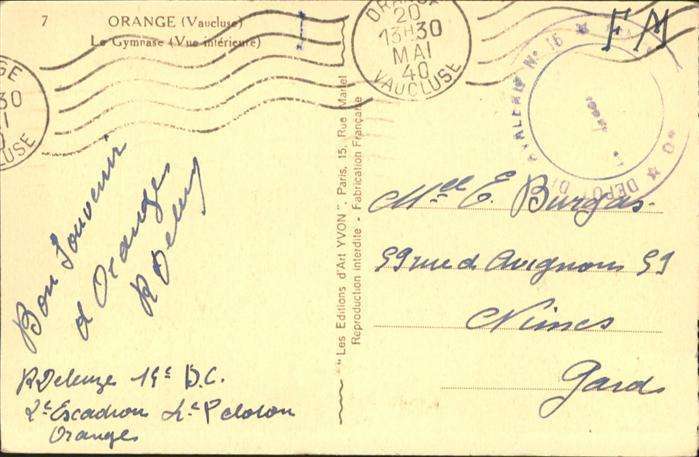 7 ORANGE (Vaucluse)
Le Gymnase (Vue intérieure)
ORANGE
20
13H30
MAI
40
VAUCLUSE
FM
DEPOT DE CAVALERIE N° 15
Bon Souvenir
d'Oranges
R Deleuze
R Deleuze 15e D.C.
2e Escadron 4e Peloton
Oranges
"Les Editions d'Art YVON". Paris, 15, Rue Martel
Reproduction interdite - Fabrication Française
Melle E. Burgas
59 rue d'Avignon 59
Nimes
Gard